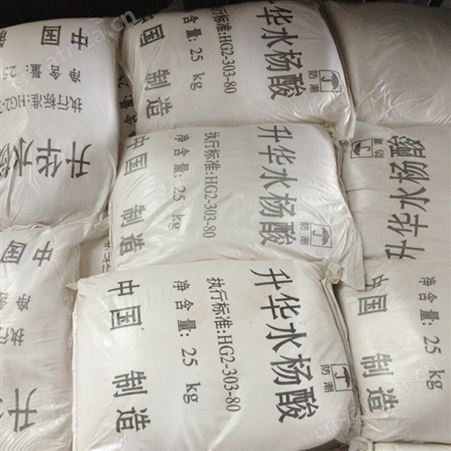 中国
净含量: 25
执行标准:HG2-3
升华水杨
升华水杨酸
防潮
执行标准:HG2-303-80
净含量: 25 kg
中国 制造
升华水杨酸
防潮
执行标准:HG2-303-80
净含量: 25 kg
中国 制造
升华水杨酸
防潮
执行标准:HG2-303-80
净含量: 25 kg
中国 制造
升华水杨
防潮
升华水杨酸